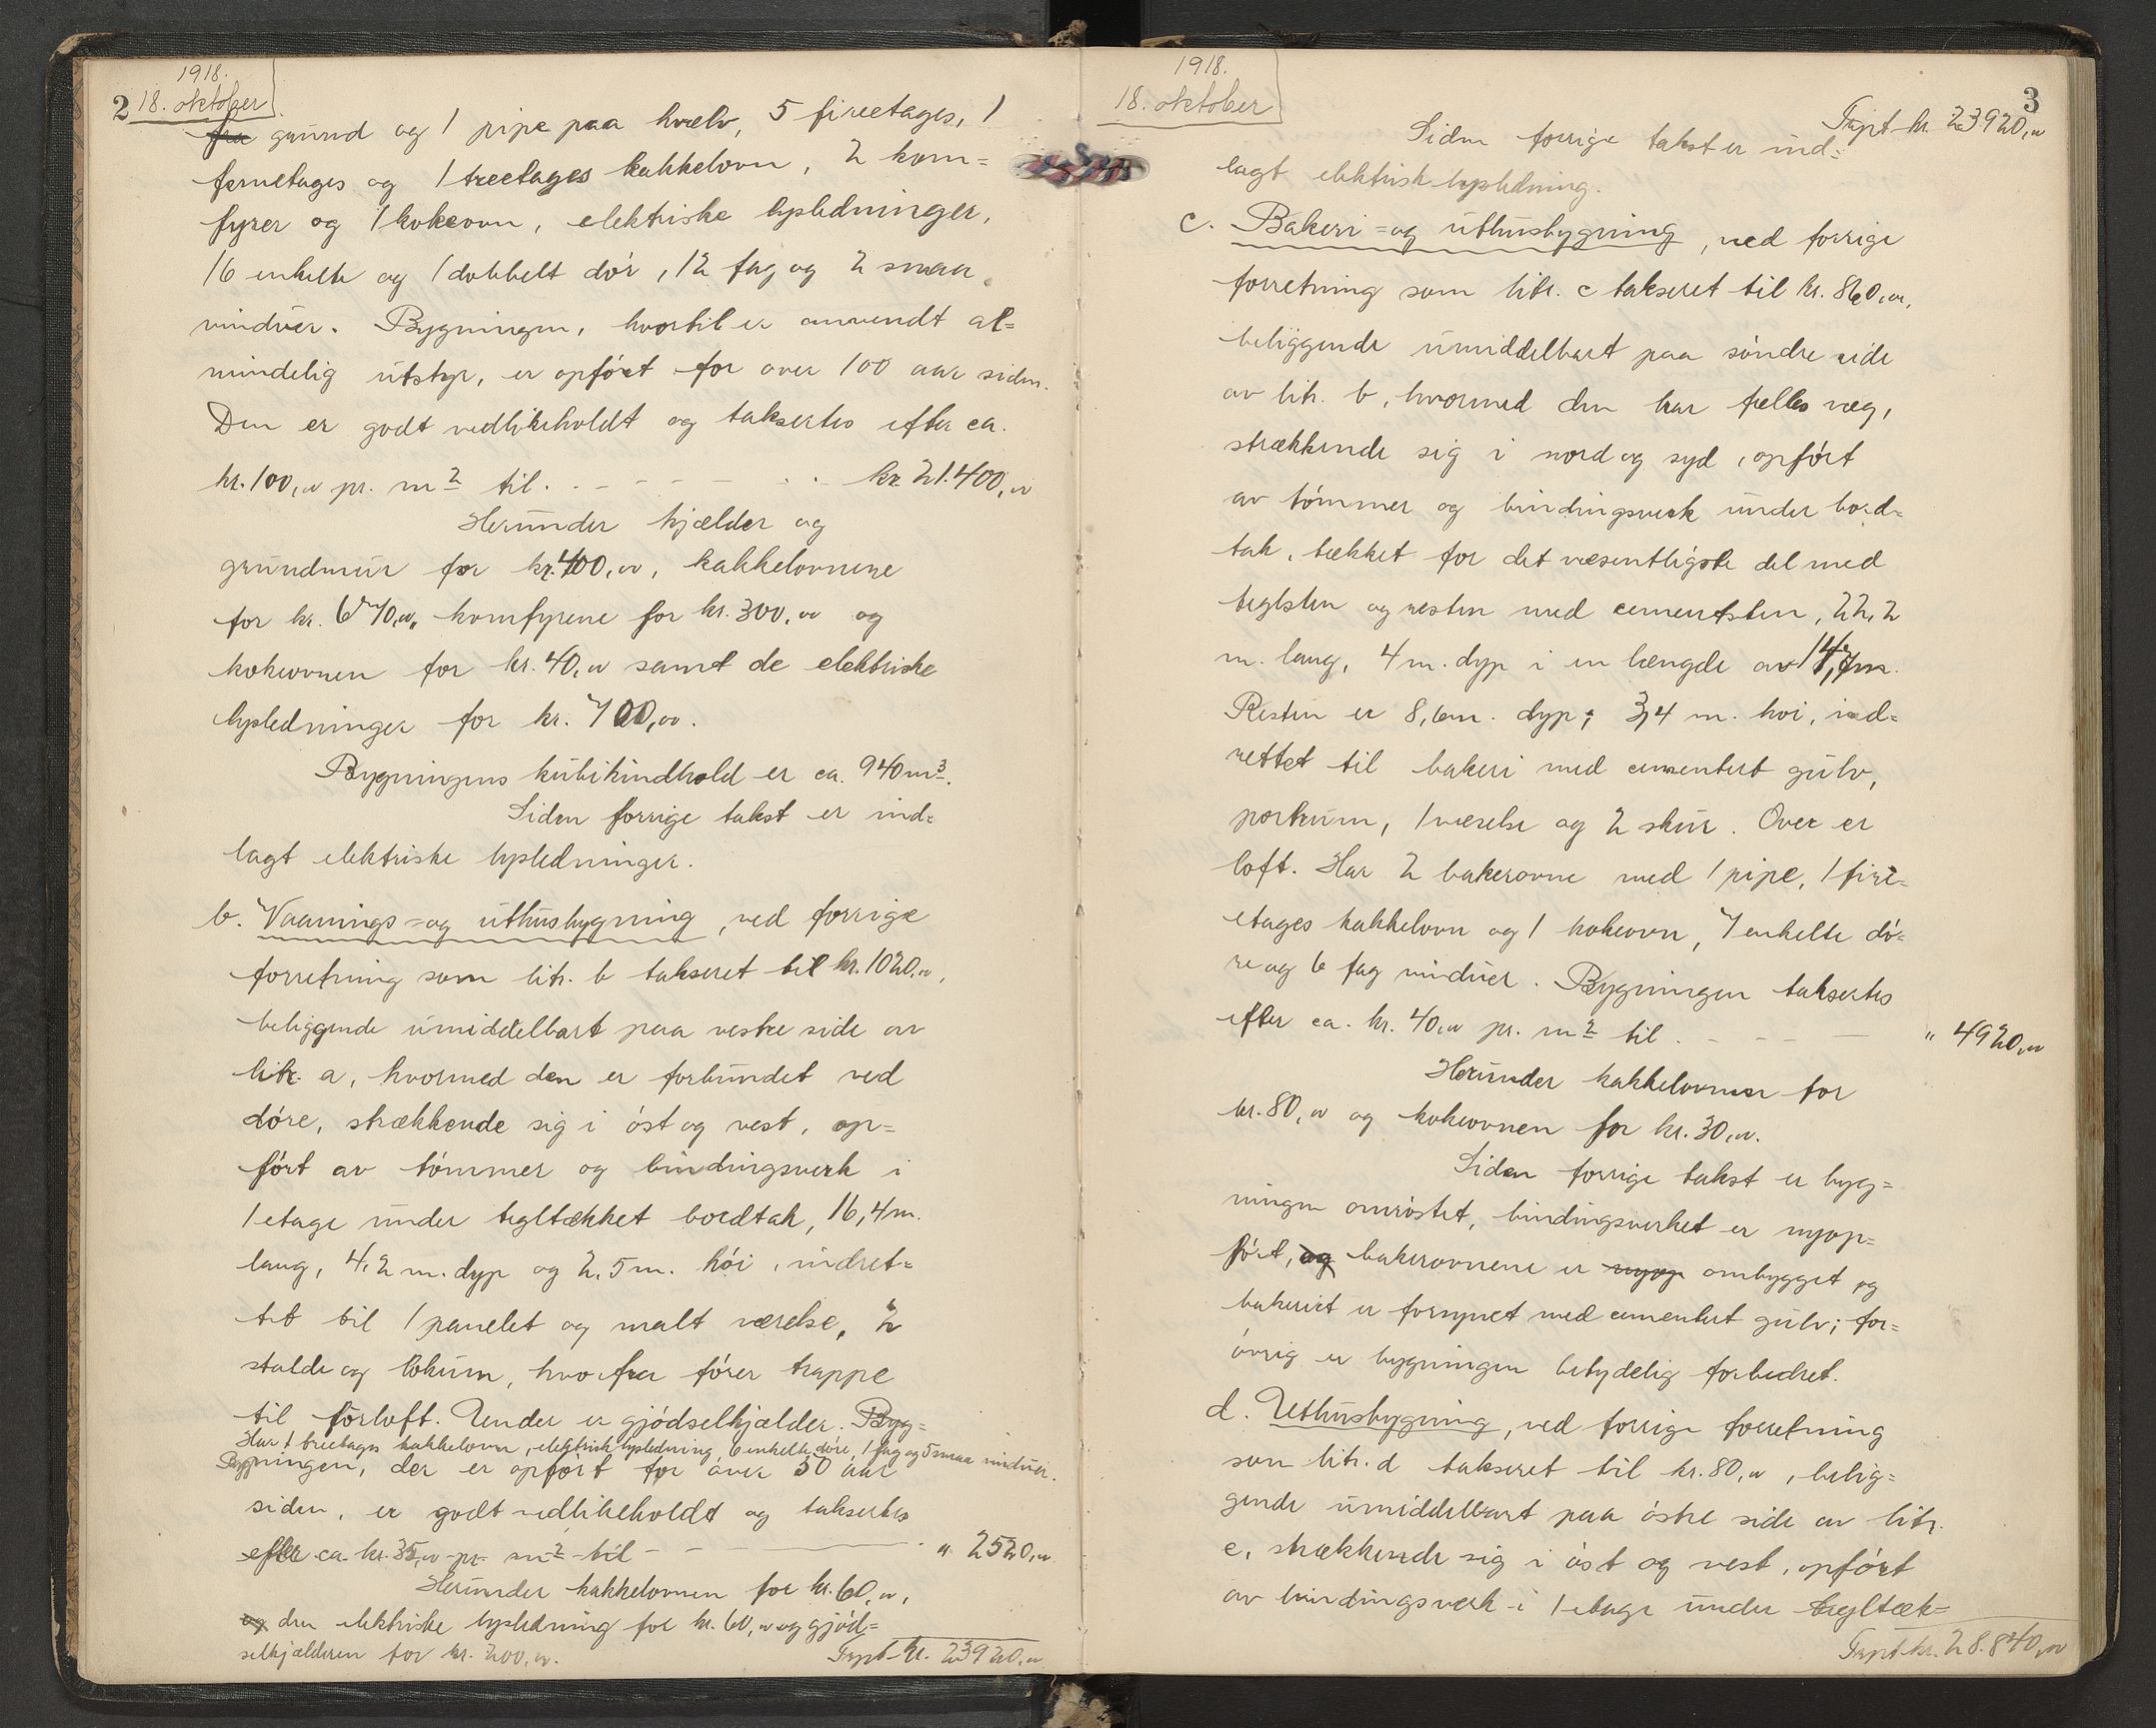 1918.
2 18. oktober
fra grund og 1 pipe paa hvælv, 5 fireetages, 1
femetages og 1 treetages kakkelovn, 2 kom=
fyrer og 1 kokeovn, elektriske lysledninger,
16 enkelte og 1 dobbelt dór, 12 fag og 2 smaa
vinduer. Bygningen, hvortil er anvendt al=
mindelig utstyr, er opfórt for over 100 aar siden.
Den er godt vedlikeholdt og taksertes efter ca.
kr. 100,00 pr. m2 til . . - - - - - . . - kr. 21.400,00
Herunder kjælder og
grundmur for kr. 400,00, kakkelovnene
for kr. 670,00, komfyrene for kr. 300,00 og
kokeovnen for kr. 40,00 samt de elektriske
lysledninger for kr. 700,00.
Bygningens kubikindhold er ca. 940 m3.
Siden forrige takst er ind=
lagt elektriske lysledninger.
b. Vaanings=og uthusbygning, ved forrige
forretning som litr. b takseret til kr. 1020,00,
beliggende umiddelbart paa vestre side av
litr. a, hvormed den er forbundet ved
dóre, strækkende sig i óst og vest, op=
fórt av tómmer og bindingsverk i
1 etage under tegltækket bordtak, 16,4 m.
lang, 4,2 m. dyp og 2,5 m. hói, indret=
tet til 1 panelet og malt værelse, 2
stalde og lokum, hvorfra fórer trappe
til fórloft. Under er gjódselkjælder. Byg=
Har 1 treetages kakkelovn, elektrisk lysledning, 6 enkelte dóre, 1 fag og 5 smaa vinduer.
Bygningen, der er opfórt for over 50 aar
siden, er godt vedlikeholdt og taksertes
efter ca. kr. 35,00 pr. m2 til - - - " 2520,00
Herunder kakkelovnen for kr. 60,00,
og den elektriske lysledning for kr. 60,00 og gjód=
selkjælderen for kr. 200,00.
Trspt. kr. 23920,00
1918.
18. oktober
3
Trspt. kr. 23920,00
Siden forrige takst er ind=
lagt elektrisk lysledning.
c. Bakeri=og uthusbygning, ved forrige
forretning som litr. c takseret til kr. 860,00,
beliggende umiddelbart paa sóndre side
av litr. b, hvormed den har fælles væg,
strækkende sig i nord og syd, opfórt
av tómmer og bindingsverk under bord=
tak, tækket for det væsentligste del med
teglsten og resten med cementsten, 22,2
m. lang, 4 m. dyp i en længde av 14,7 m.
Resten er 8,6 m. dyp; 3,4 m. hói, ind=
rettet til bakeri med cementert gulv,
portrum, 1 værelse og 2 skur. Over er
loft. Har 2 bakerovne med 1 pipe, 1 fire=
etages kakkelovn og 1 kokeovn, 7 enkelte dó=
re og 6 fag vinduer. Bygningen taksertes
efter ca. kr. 40,00 pr. m2 til . - - - - " 4920,00
Herunder kakkelovnen for
kr. 80,00 og kokeovnen for kr. 30,00.
Siden forrige takst er byg=
ningen omróstet, bindingsverket er nyop=
fórt, og bakerovnene er nyop ombygget og
bakeriet er forsynet med cementert gulv; for=
óvrig er bygningen betydelig forbedret.
d. Uthusbygning, ved forrige forretning
som litr. d takseret til kr. 80,00, belig=
gende umiddelbart paa óstre side av litr.
c, strækkende sig i óst og vest, opfórt
av bindingsverk i 1 etage under tegltæk=
Trspt. kr. 28.840,00